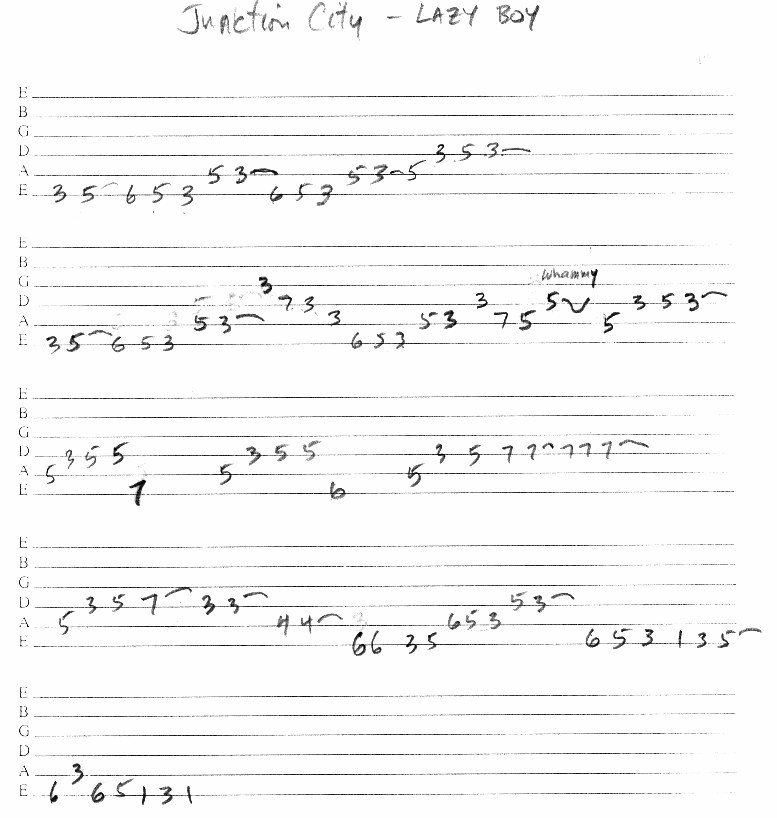 Junction City - LAZY BOY
E
B
G
D 3 5 3
A 5 3 5 3 5
E 3 5 6 5 3 6 5 3
whammy
E
B
G 3
D 7 3 3 5 3 5 3
A 5 3 3 5 3 7 5 5
E 3 5 6 5 3 6 5 3
E
B
G
D 3 5 5 3 5 5 3 5 7 7 7 7 7
A 5 5 5
E 1 6
E
B
G
D 3 5 7 3 3 5 3
A 5 4 4 6 5 3
E 6 6 3 5 6 5 3 1 3 5
E
B
G
D
A 3
E 6 6 5 1 3 1